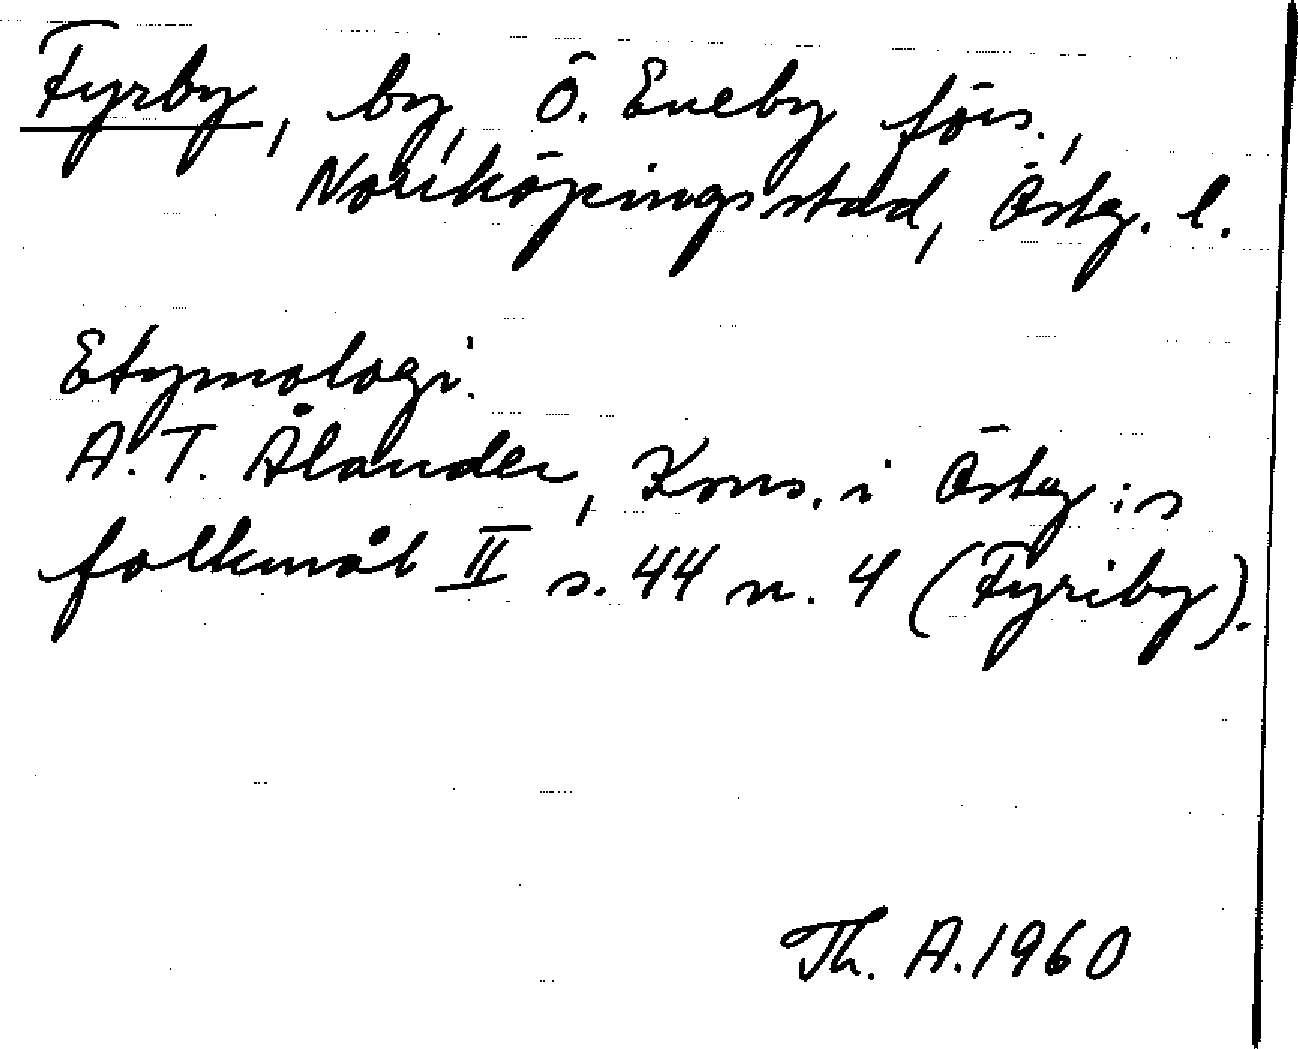 Fyrby, by, Ö. Eneby förs.,
Norrköpings stad, Östg. l.
Etymologi.
A. T. Ålander, Kons. i Östg:s
folkmål II s. 44 n. 4 (Fyriby).
Th. A. 1960